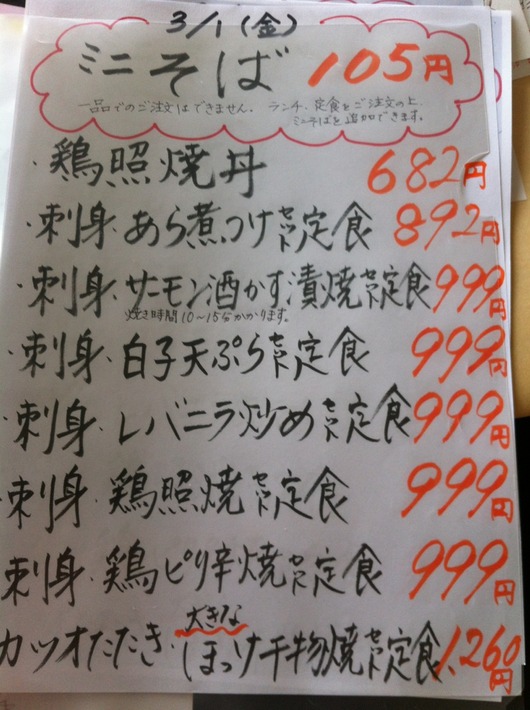 3/1(金)
ミニそば 105円
一品でのご注文はできません. ランチ、定食をご注文の上
ミニそばを追加できます。
・鶏照焼丼 682円
・刺身・あら煮つけセット定食 892円
・刺身・サーモン酒かす漬焼セット定食 999円
焼き時間10〜15分かかります。
・刺身・白子天ぷらセット定食 999円
・刺身・レバニラ炒めセット定食 999円
・刺身・鶏照焼セット定食 999円
・刺身・鶏ピリ辛焼セット定食 999円
大きな
カツオたたき・ほっけ干物焼セット定食 1,260円